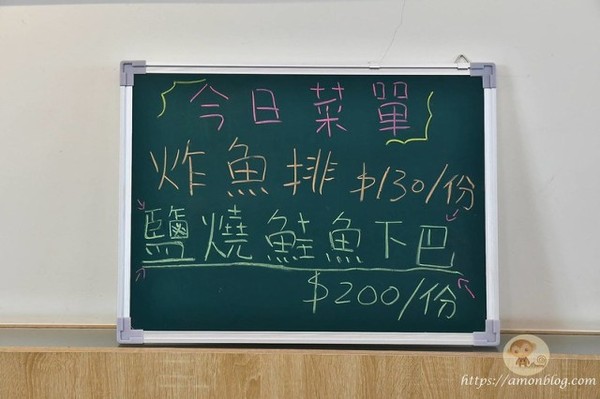 今日菜單
炸魚排 $130/份
鹽燒鮭魚下巴
$200/份
https://amonblog.com